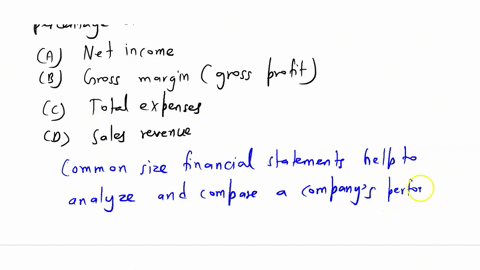 percentage
(A) Net income
(B) Gross margin (gross profit)
(C) Total expenses
(D) Sales revenue
Common size financial statements help to
analyze and compare a company's perfor